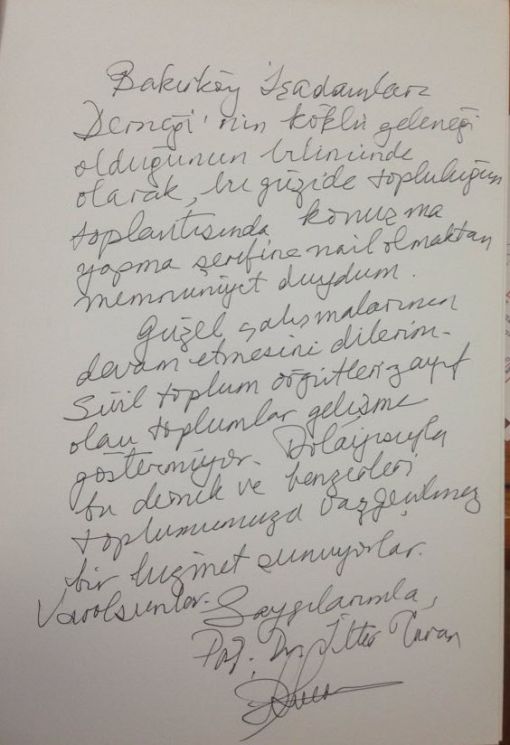 Bakırköy İşadamları
Derneği'nin köklü geleneği
olduğunun bilincinde
olarak, bu güzide topluluğun
toplantısında konuşma
yapma şerefine nail olmaktan
memnuniyet duydum.
Güzel çalışmalarının
devam etmesini dilerim.
Sivil toplum örgütleri zayıf
olan toplumlar gelişme
göstermiyor. Dolayısıyla
bu dernek ve benzerleri
toplumumuza vazgeçilmez
bir hizmet sunuyorlar.
Varolsunlar. Saygılarımla,
Prof. Dr. İlter Turan